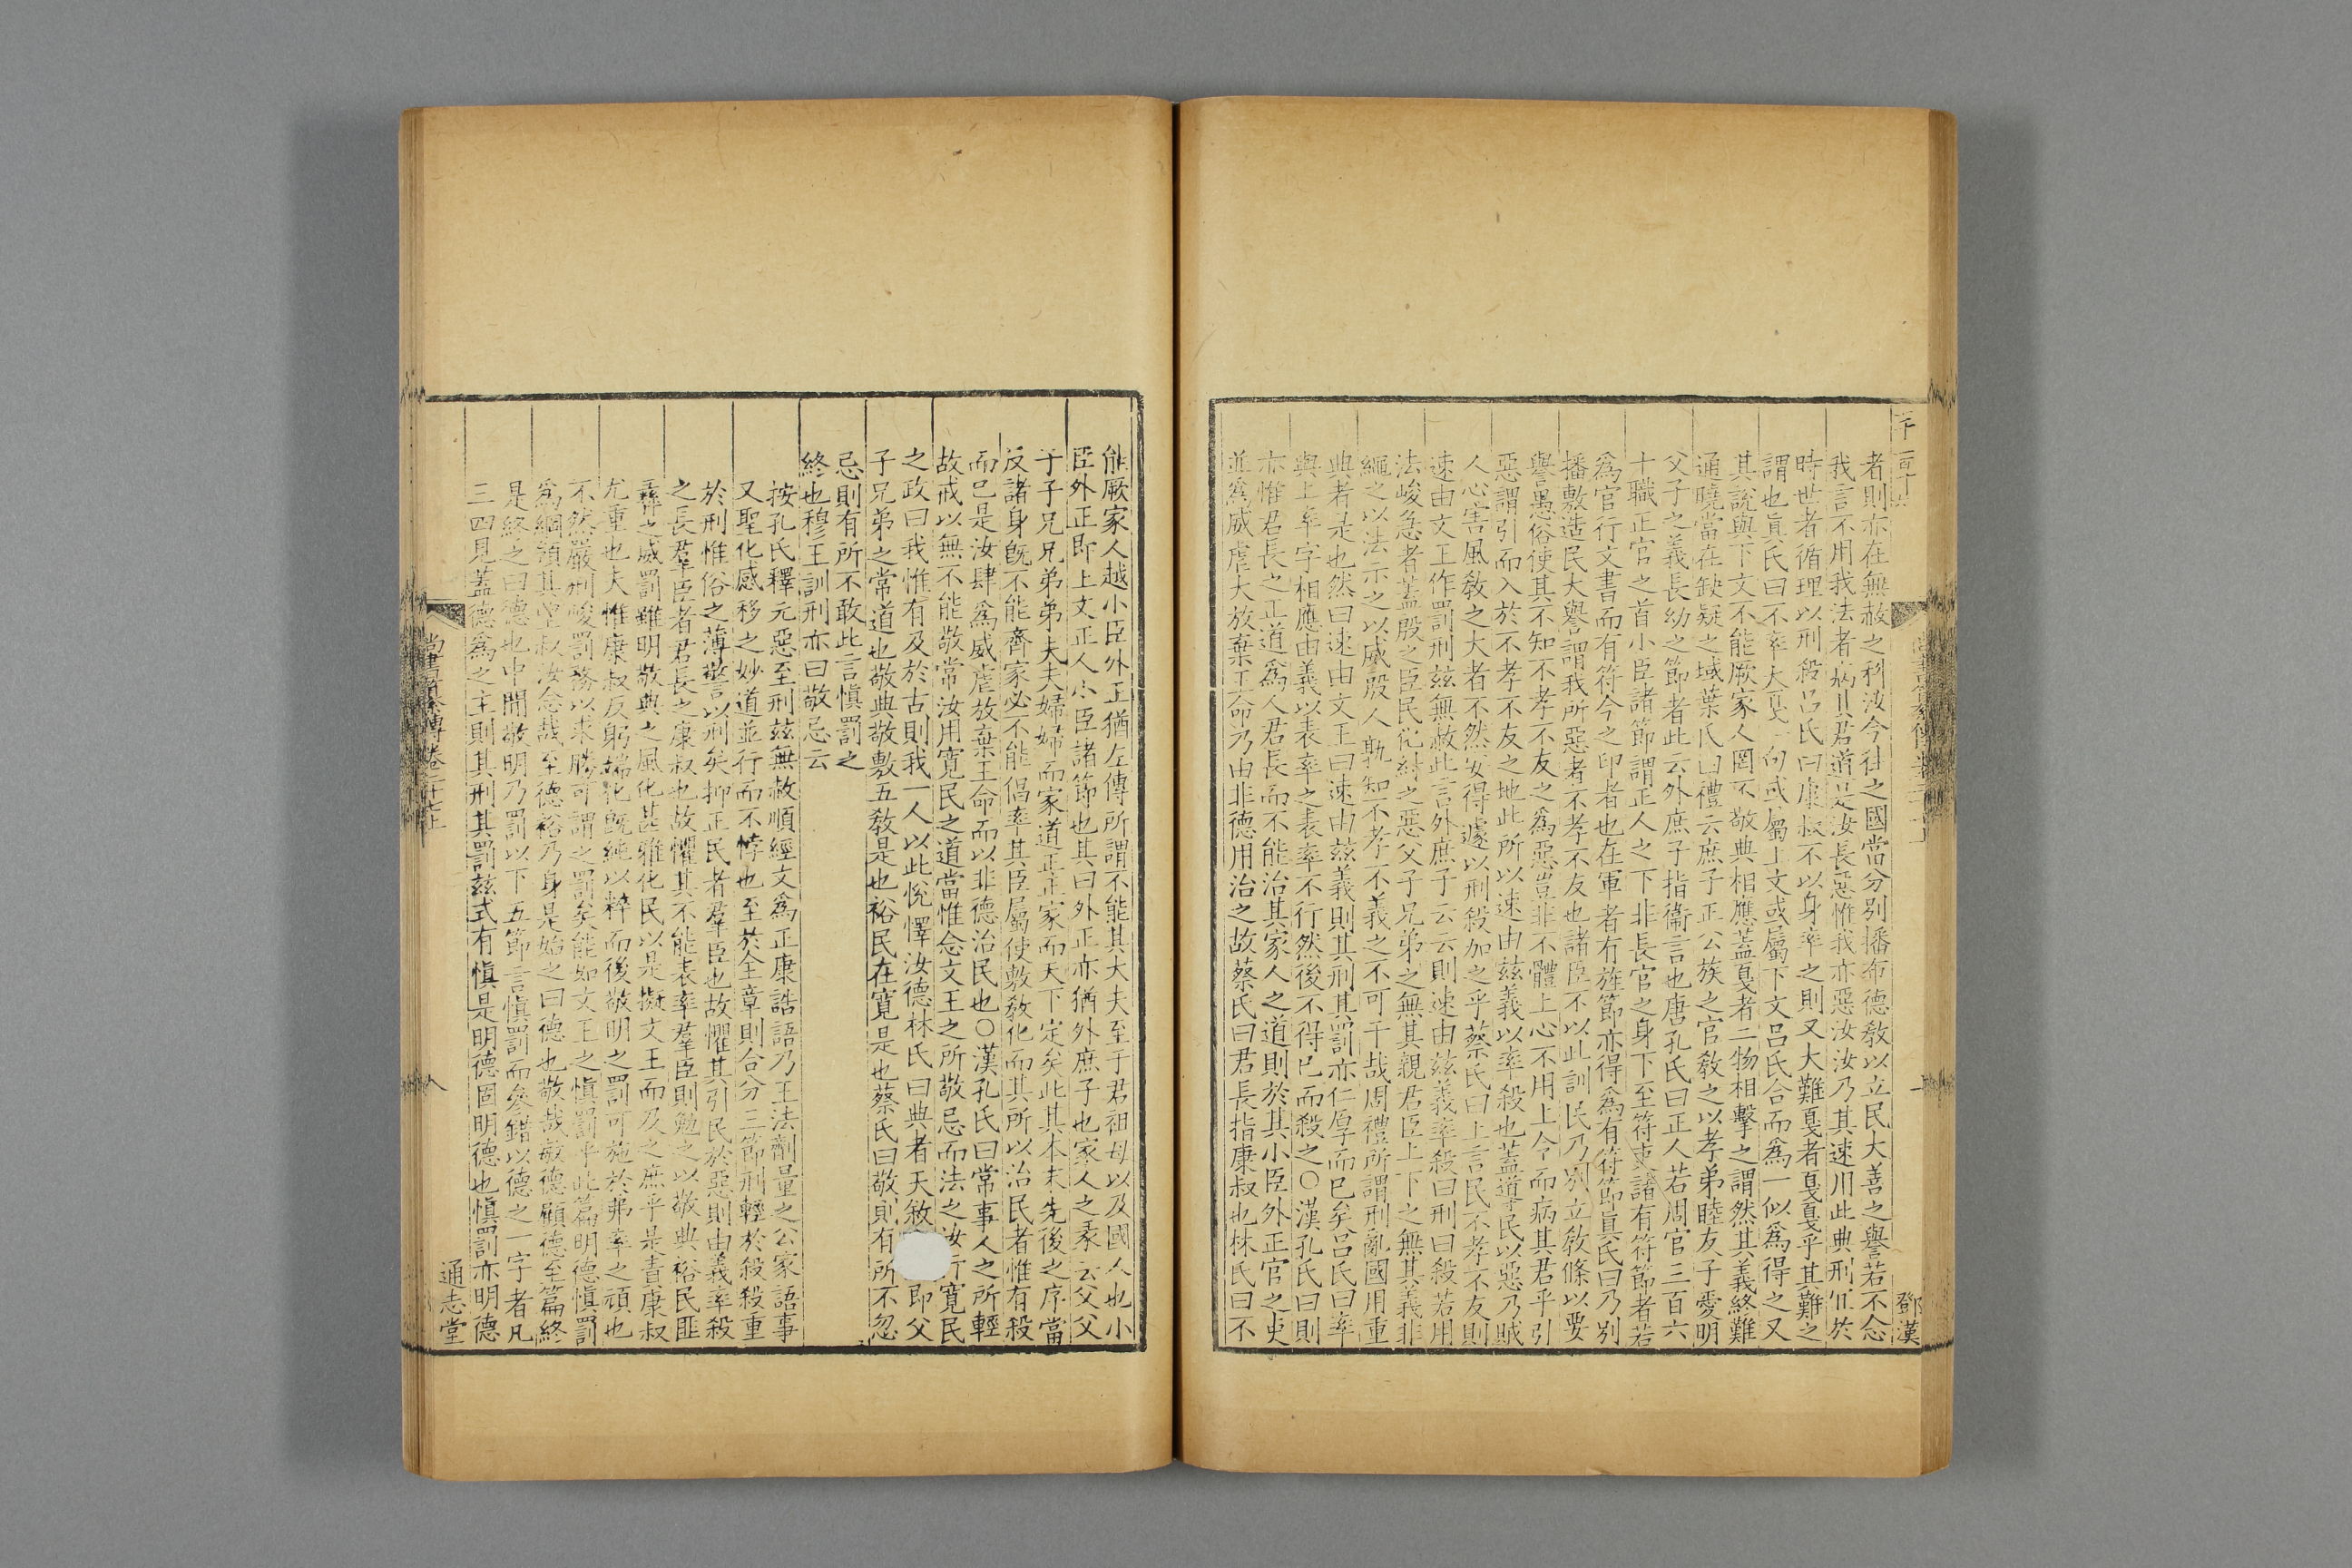 者則亦在無赦之科汝今往之國當分別播布德教以立民大善之譽若不念
我言不用我法者病其君道是汝長惡惟我亦惡汝汝乃其速用此典刑宜於
時世者循理以刑殺呂氏曰康叔不以身率之則又大難戛者戛戛乎其難之
謂也眞氏曰不率大戛一句或屬上文或屬下文呂氏合而爲一似爲得之又
其說與下文不能厥家人罔不敬典相應蓋戛者二物相擊之謂然其義終難
通曉當在缺疑之域葉氏曰禮云庶子正公族之官教之以孝弟睦友子愛明
父子之義長幼之節者此云外庶子指衞言也唐孔氏曰正人若周官三百六
十職正官之首小臣諸節謂正人之下非長官之身下至符吏諸有符節者若
爲官行文書而有符今之印者也在軍者有旌節亦得爲有符節眞氏曰乃別
播敷造民大譽謂我所惡者不孝不友也諸臣不以此訓民乃別立敎條以要
譽愚俗使其不知不孝不友之爲惡豈非不體上心不用上令而病其君乎引
惡謂引而入於不孝不友之地此所以速由茲義以率殺也蓋導民以惡乃賊
人心害風敎之大者不然安得遽以刑殺加之乎蔡氏曰上言民不孝不友則
速由文王作罰刑茲無赦此言外庶子云云則速由茲義率殺曰刑曰殺若用
法峻急者蓋殷之臣民化紂之惡父子兄弟之無其親君臣上下之無其義非
繩之以法示之以威殷人孰知不孝不義之不可干哉周禮所謂刑亂國用重
典者是也然曰速由文王曰速由茲義則其刑其罰亦仁厚而已矣呂氏曰率
與上率字相應由義以表率之表率不行然後不得已而殺之○漢孔氏曰則
亦惟君長之正道爲人君長而不能治其家人之道則於其小臣外正官之吏
並爲威虐大放棄王命乃由非德用治之故蔡氏曰君長指康叔也林氏曰不
鄧漢
能厥家人越小臣外正猶左傳所謂不能其大夫至于君祖母以及國人也小
臣外正即上文正人小臣諸節也其曰外正亦猶外庶子也家人之彖云父父
子子兄兄弟弟夫夫婦婦而家道正正家而天下定矣此其本末先後之序當
反諸身旣不能齊家必不能倡率其臣屬使敷敎化而其所以治民者惟有殺
而已是汝肆爲威虐放棄王命而以非德治民也○漢孔氏曰常事人之所輕
故戒以無不能敬常汝用寛民之道當惟念文王之所敬忌而法之汝行寛民
之政曰我惟有及於古則我一人以此悅懌汝德林氏曰典者天敘即父
子兄弟之常道也敬典敬敷五敎是也裕民在寛是也蔡氏曰敬則有所不忽
忌則有所不敢此言愼罰之
終也穆王訓刑亦曰敬忌云
按孔氏釋元惡至刑茲無赦順經文爲正康誥語乃王法劑量之公家語事
又聖化感移之妙道並行而不悖也至於全章則合分三節刑輕於殺殺重
於刑惟俗之薄警以刑矣抑正民者羣臣也故懼其引民於惡則由義率殺
之長羣臣者君長之康叔也故懼其不能表率羣臣則勉之以敬典裕民匪
彞之威罰雖明敬典之風化甚雅化民以是擬文王而及之庶乎是責康叔
尤重也夫惟康叔反躬端化旣純以粹而後敬明之罰可施於弗率之頑也
不然嚴刑峻罰務以求勝可謂之罰矣能如文王之愼罰乎此篇明德愼罰
爲綱領其望叔汝念哉至德裕乃身是始之曰德也敬哉敏德顧德至篇終
是終之曰德也中間敬明乃罰以下五節言愼罰而參錯以德之一字者凡
三四見蓋德爲之主則其刑其罰茲式有愼是明德固明德也愼罰亦明德
尚書纂傳卷二十七上
八
通志堂